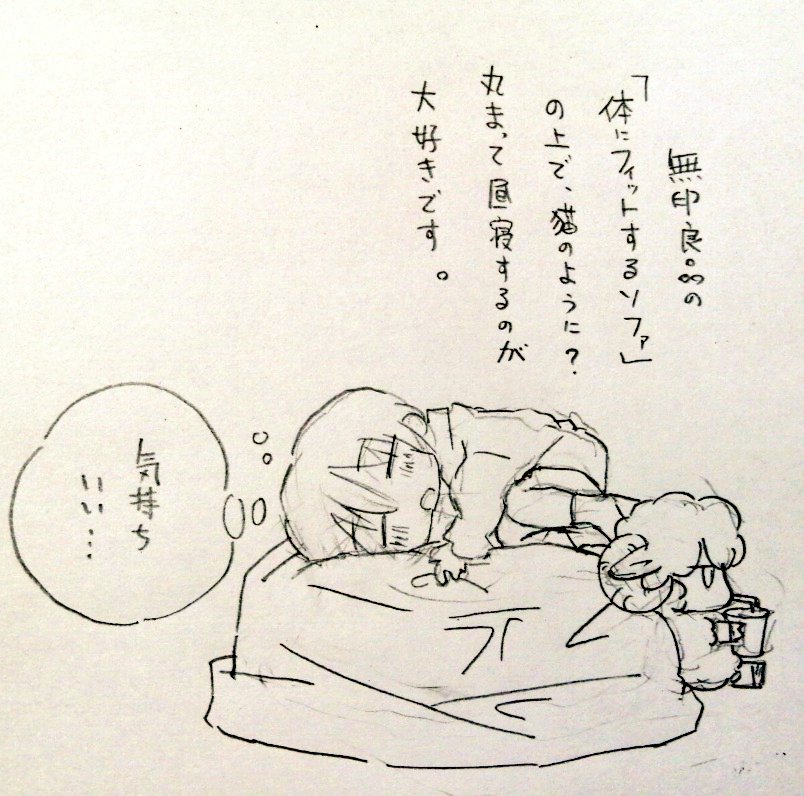 無印良品の
「体にフィットするソファ」
の上で、猫のように？
丸まって昼寝するのが
大好きです。
気持ち
いい…